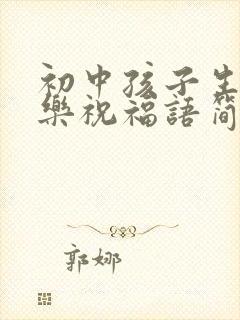 初中孩子生
樂祝福語簡
郭娜